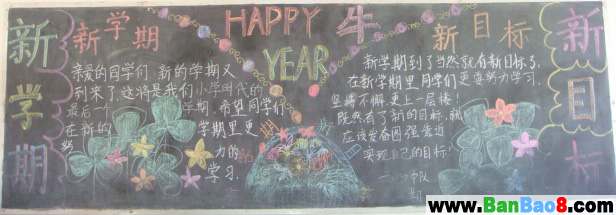 新学期
新学期
亲爱的同学们,新的学期又
到来了,这将是我们小学时代的
最后一个学期,希望同学们
在新的学期里更
努力的
学习.
HAPPY 牛
YEAR
新目标
新学期到了当然就有新目标了.
在新学期里同学们更要努力学习.
坚持不懈.更上一层楼!
既然有了新的目标,就
应该发奋图强靠近
实现自己的目标!
新目标
www.BanBao8.com